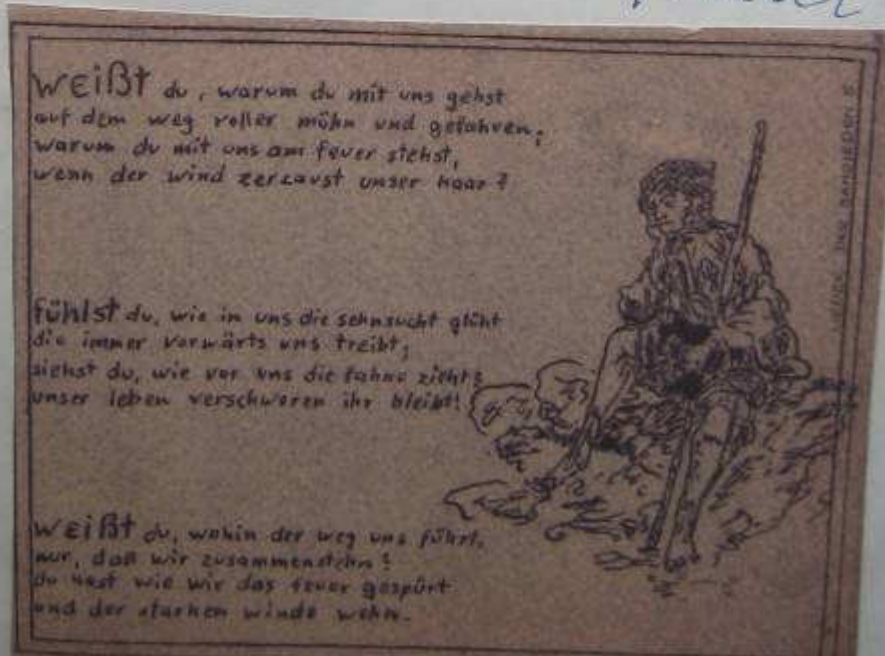 weißt du, warum du mit uns gehst
auf dem weg voller mühn und gefahren;
warum du mit uns am feuer stehst,
wenn der wind zerzaust unser haar?
fühlst du, wie in uns die sehnsucht glüht
die immer vorwärts uns treibt;
siehst du, wie vor uns die fahne zieht;
unser leben verschworen ihr bleibt!
weißt du, wohin der weg uns führt,
nur, daß wir zusammenstehn!
du hast wie wir das feuer gespürt
und der starken winde wehn.